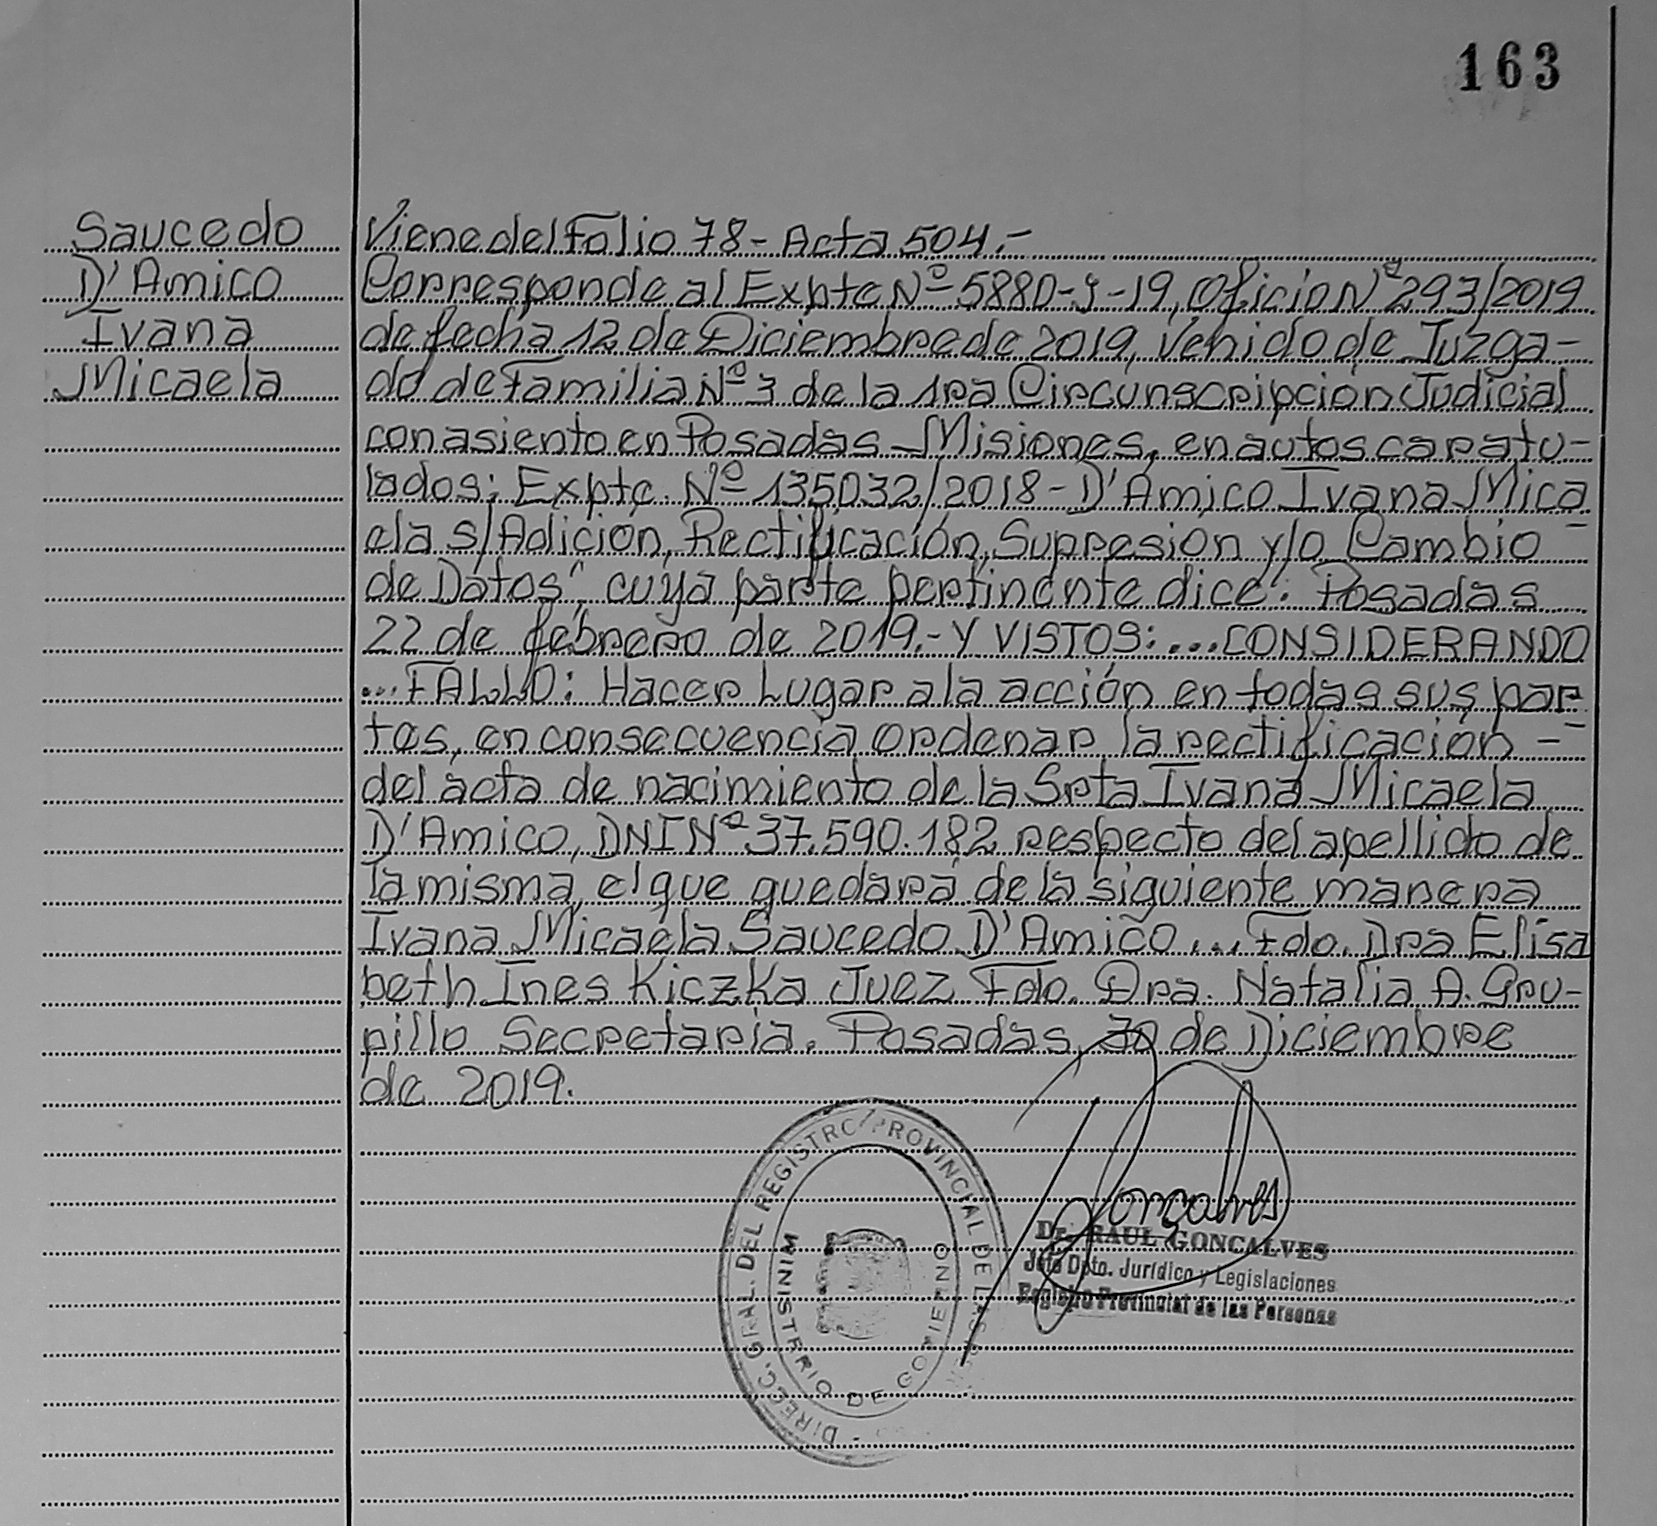 163
Saucedo
D'Amico
Ivana
Micaela
Viene del Folio 78 - Acta 504.-
Corresponde al Expte Nº 5880-S-19, Oficio Nº 293/2019
de fecha 12 de Diciembre de 2019, Venido de Juzga-
do de Familia Nº 3 de la 1ra Circunscripción Judicial
con asiento en Posadas Misiones, en autos caratu-
lados: Expte. Nº 135032/2018 - D'Amico Ivana Mica
ela S/Adición, Rectificación, Supresion y/o Cambio -
de Datos", cuya parte pertinente dice: Posadas
22 de febrero de 2019.- Y VISTOS: ... CONSIDERANDO
... FALLO: Hacer Lugar a la acción en todas sus par
tes, en consecuencia ordenar la rectificación -
del acta de nacimiento de la Srta Ivana Micaela
D'Amico, DNI Nº 37.590.182 respecto del apellido de
la misma, el que quedará de la siguiente manera
Ivana Micaela Saucedo D'Amico ... Fdo. Dra Elisa
beth Ines Kiczka Juez Fdo. Dra. Natalia A. Gru-
pillo Secretaria. Posadas, 30 de Diciembre
de 2019.
DIREC. GRAL. DEL REGISTRO PROVINCIAL DE LAS
MINISTERIO DE GOBIERNO
Goncalves
Dr. RAUL GONCALVES
Jefe Dpto. Jurídico y Legislaciones
Registro Provincial de las Personas